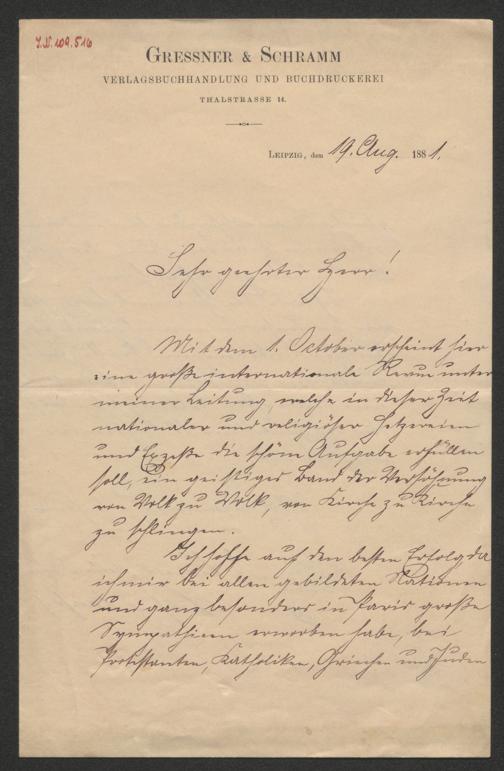 I.N. 109.516
GRESSNER & SCHRAMM
VERLAGSBUCHHANDLUNG UND BUCHDRUCKEREI
THALSTRASSE 14.
LEIPZIG, den 19. Aug. 1881.
Sehr geehrter Herr!
Mit dem 1. October erscheint hier
eine große internationale Revue unter
meiner Leitung, welche in dieser Zeit
nationaler und religiöser Hetzereien
und Exzeße die schöne Aufgabe erfüllen
soll, ein geistiges Band der Versöhnung
von Volk zu Volk, von Kirche zu Kirche
zu schlingen.
Ich hoffe auf den besten Erfolg da
ich mir bei allen gebildeten Nationen
und ganz besonders in Paris große
Sympathieen erworben habe, bei
Protestanten, Katholiken, Griechen und Juden